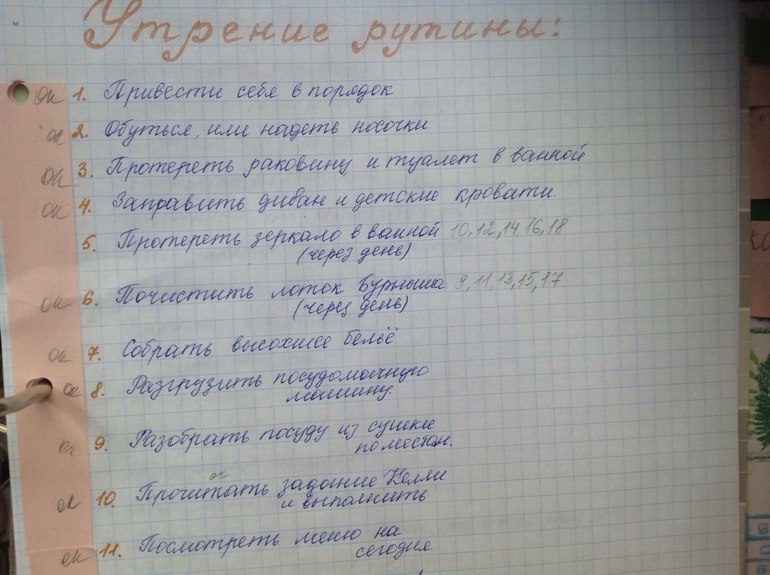 Утрение рутины:
ок 1. Привести себя в порядок
ок 2. Обуться, или надеть носочки
ок 3. Протереть раковину и туалет в ванной
ок 4. Заправить диван и детские кровати.
5. Протереть зеркало в ванной 10,12,14,16,18
(через день)
ок 6. Почистить лоток Бурныша 9,11,13,15,17
(через день)
ок 7. Собрать высохшее бельё
ок 8. Разгрузить посудомоечную
машину.
ок 9. Разобрать посуду из сушки
по местам.
ок
ок 10. Прочитать задание Келли
и выполнить
ок 11. Посмотреть меню на
сегодня